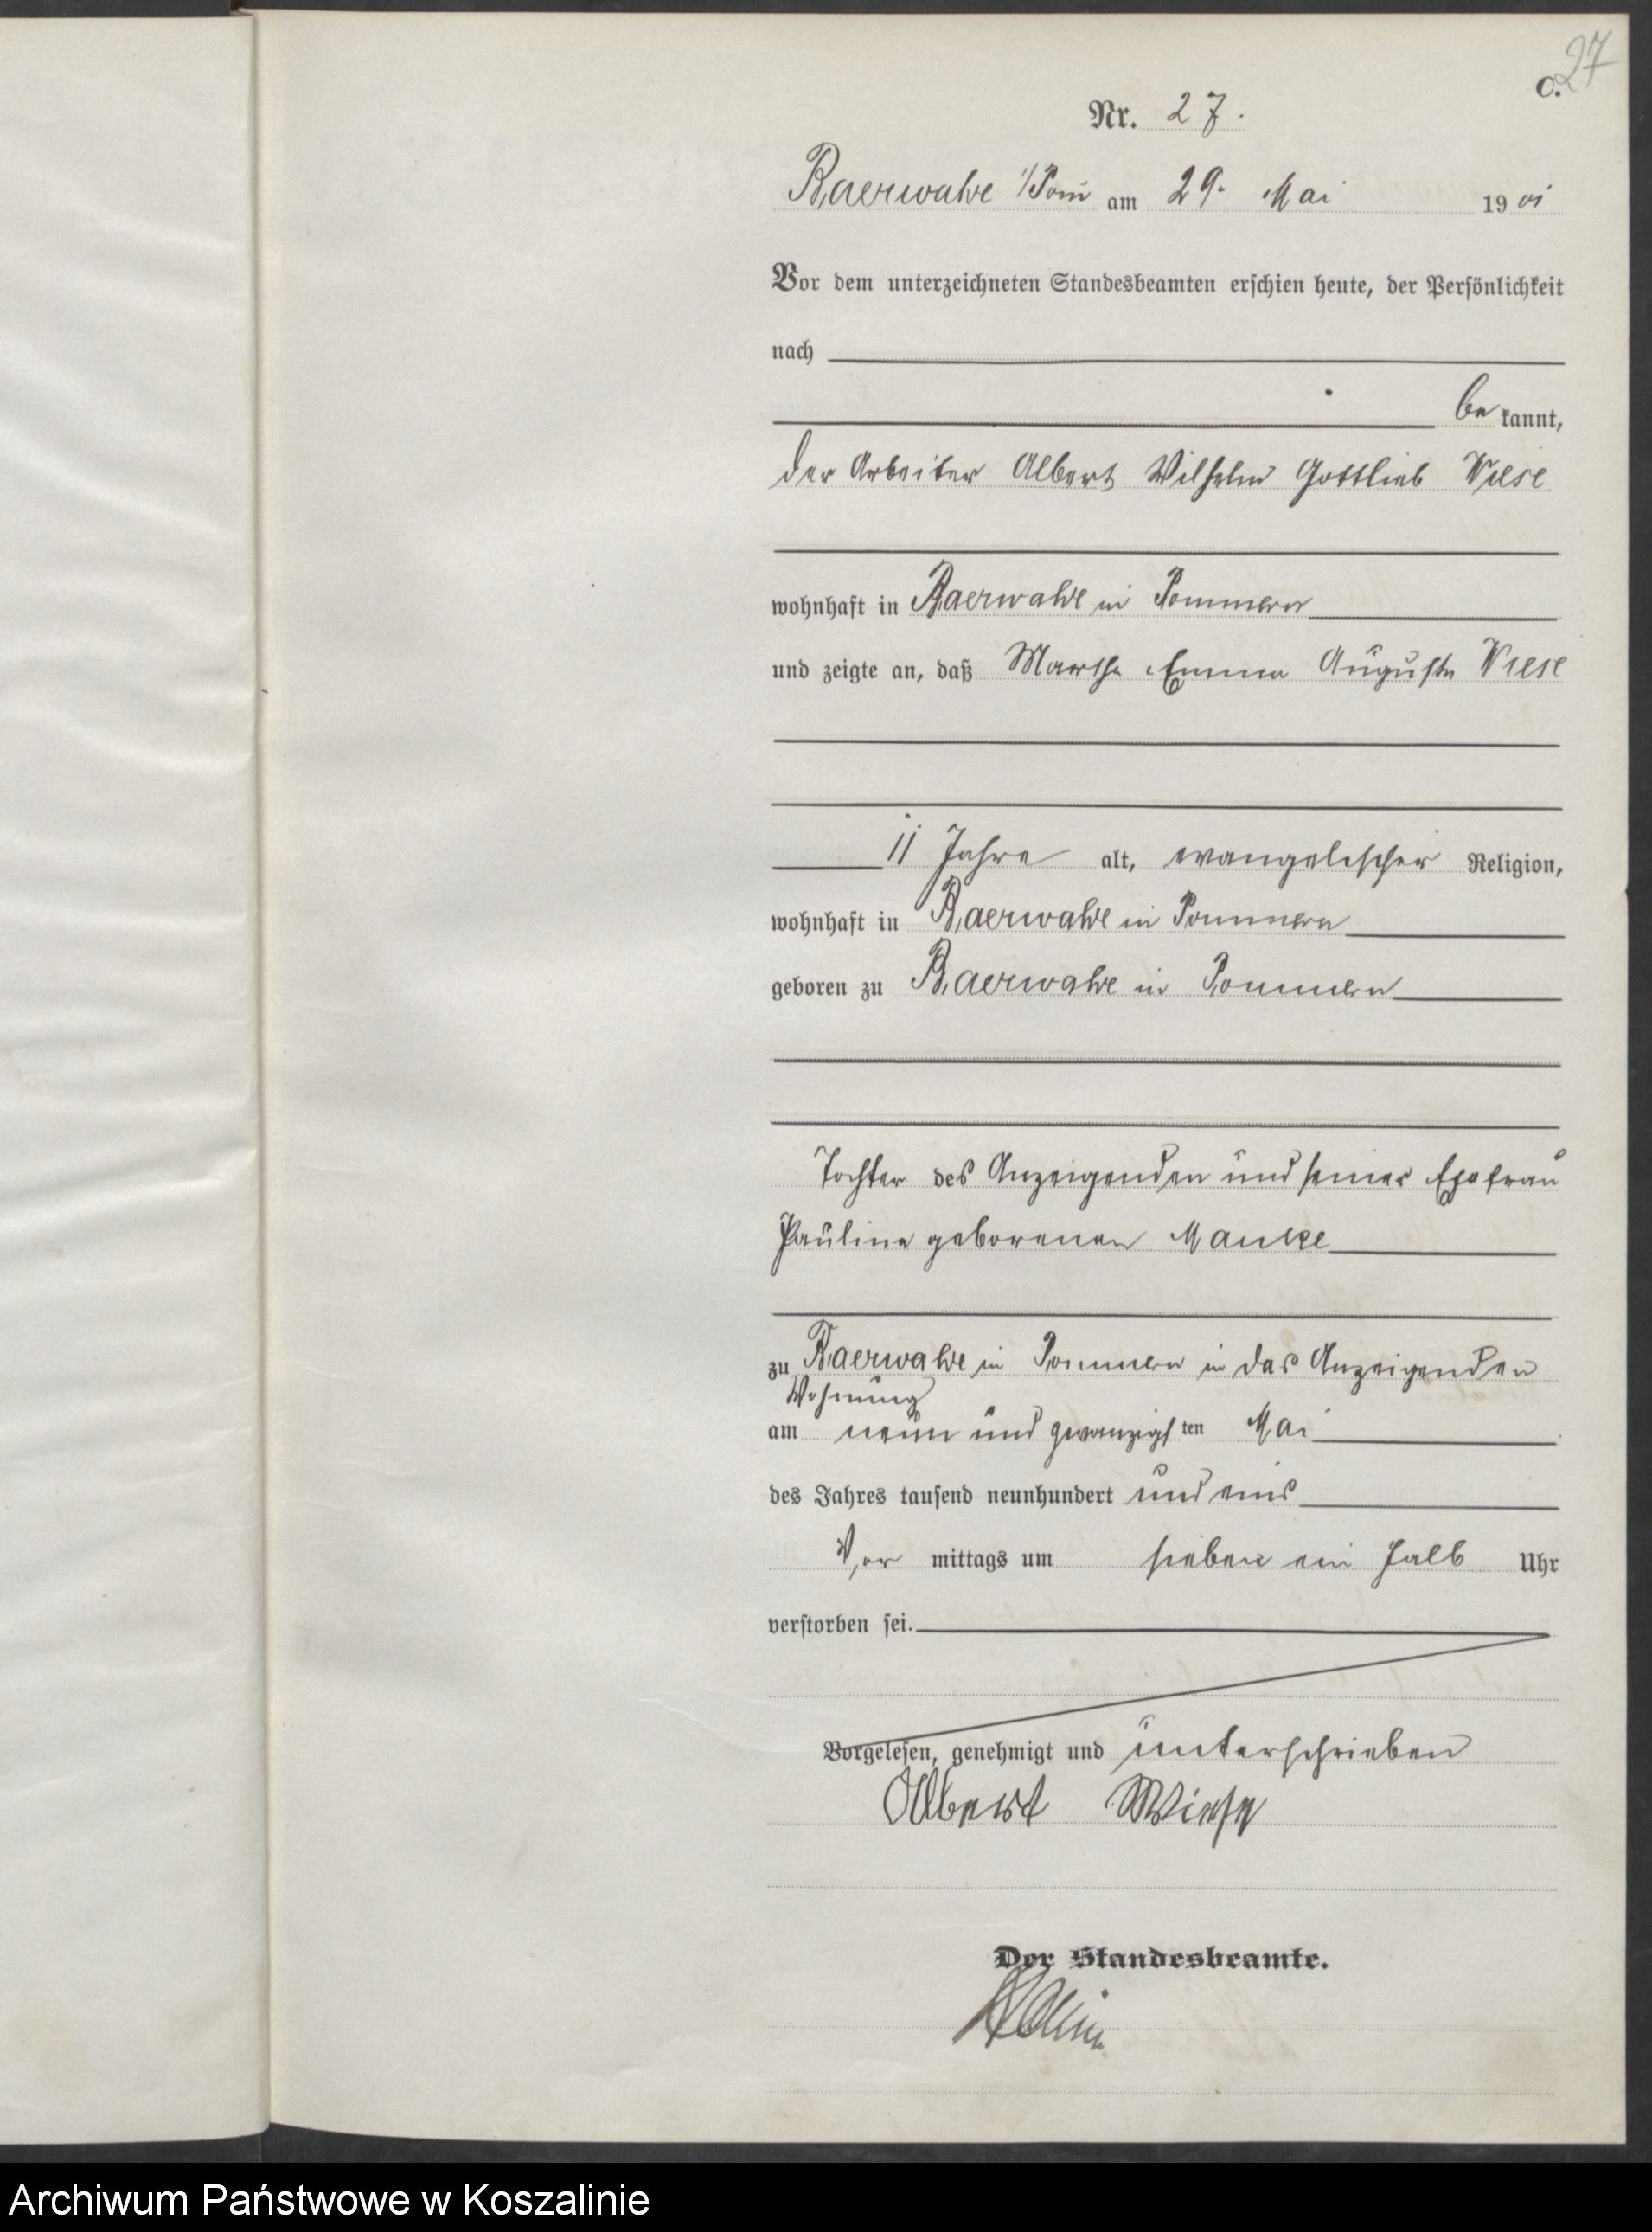 27
C.
Nr. 27.
Baerwalde i/Pom am 29. Mai 1901
Vor dem unterzeichneten Standesbeamten erschien heute, der Persönlichkeit
nach
bekannt,
der Arbeiter Albert Wilhelm Gottlieb Wiese
wohnhaft in Baerwalde in Pommern
und zeigte an, daß Martha Emma Auguste Wiese
11 Jahre alt, evangelischer Religion,
wohnhaft in Baerwalde in Pommern
geboren zu Baerwalde in Pommern
Tochter des Anzeigenden und seiner Ehefrau
Pauline geborenen Manke
zu Baerwalde in Pommern in des Anzeigenden
Wohnung
am neun und zwanzigsten Mai
des Jahres tausend neunhundert und eins
Vormittags um sieben ein halb Uhr
verstorben sei.
Vorgelesen, genehmigt und unterschrieben
Albert Wiese
Der Standesbeamte.
Archiwum Państwowe w Koszalinie